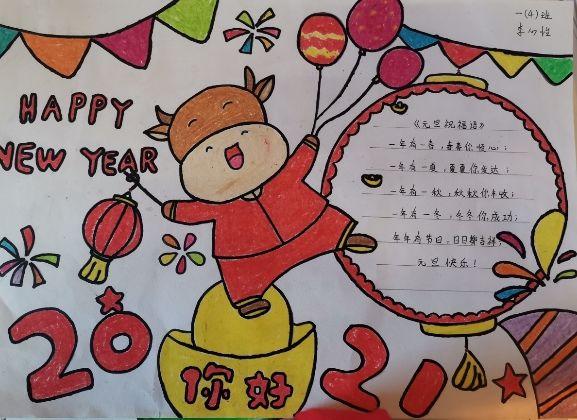 一(4)班
HAPPY
NEW YEAR
《元旦祝福语》
一年有一春,春春你暖心;
一年有一夏,夏夏你发达;
一年有一秋,秋秋你丰收;
一年有一冬,冬冬你成功;
年年有节日,日日都吉祥;
元旦快乐!
20
21
你好